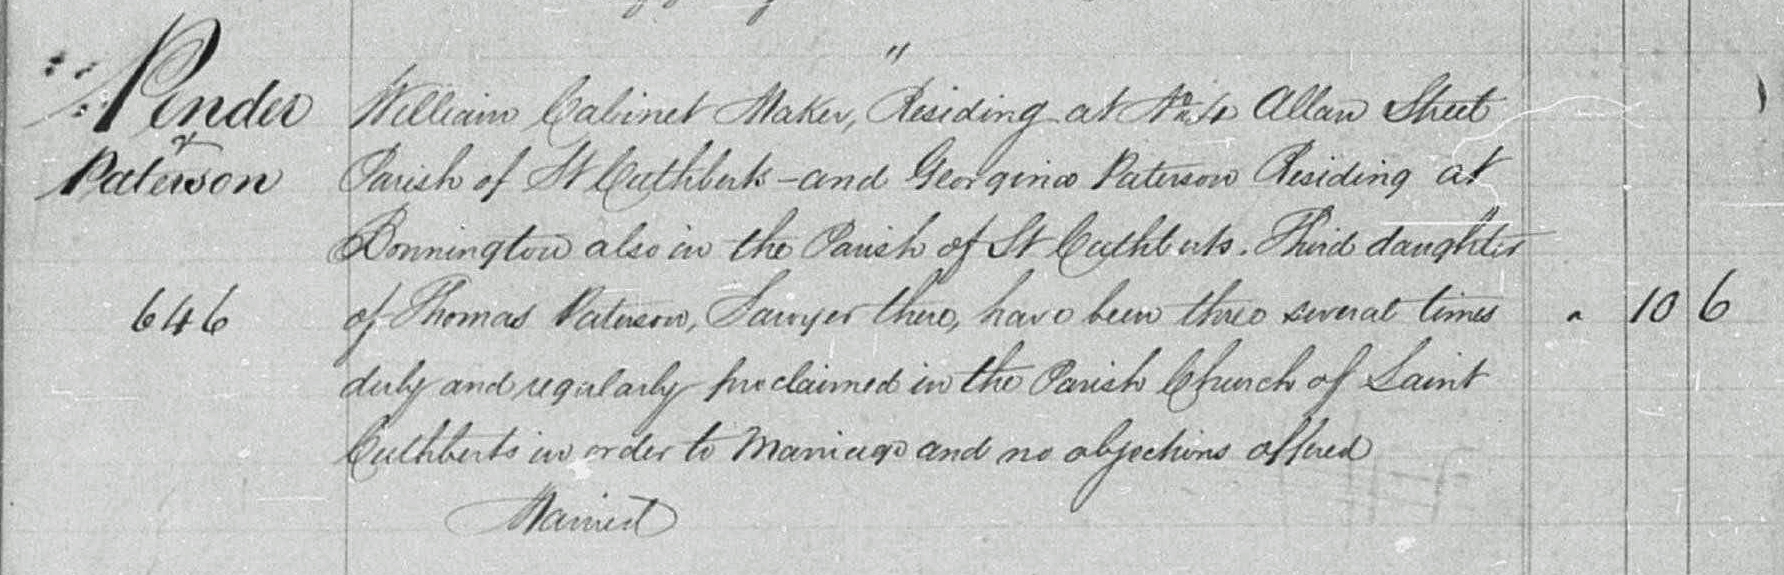 "
Pender William Cabinet Maker, Residing at No. 4 Allan Street
&
Paterson Parish of St Cuthberts - and Georgina Paterson Residing at
Bonnington also in the Parish of St Cuthberts. Third daughter
646 of Thomas Paterson, Sawyer there, have been three several times " 10 6
duly and regularly proclaimed in the Parish Church of Saint
Cuthberts in order to Marriage and no objections offered
Married